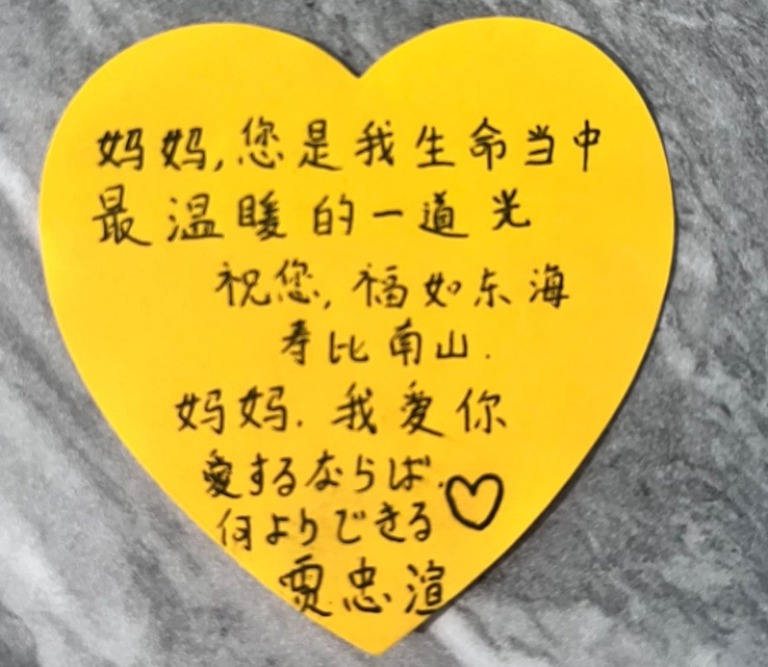 妈妈,您是我生命当中
最温暖的一道光
祝您,福如东海
寿比南山.
妈妈.我爱你
愛するならば.
何よりできる
贾忠渲